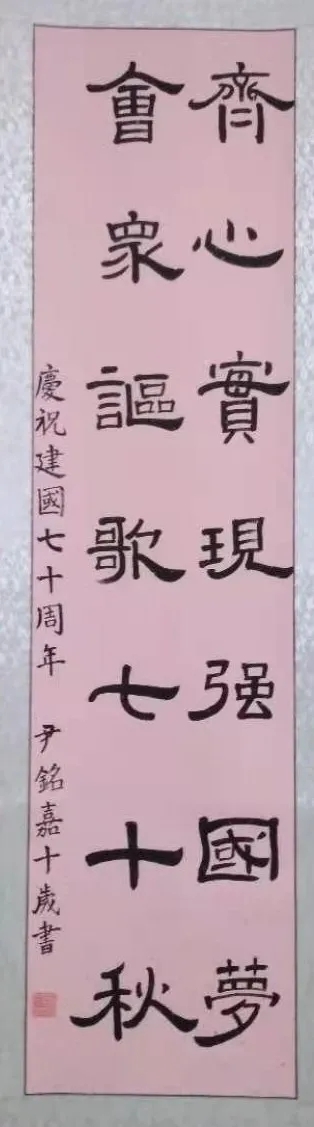 齊心實現强國夢
會衆謳歌七十秋
慶祝建國七十周年 尹銘嘉十歲書